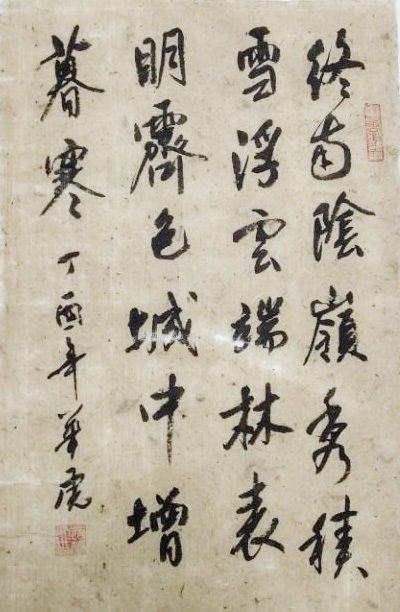 終南陰嶺秀積
雪浮雲端林表
明霽色城中增
暮寒 丁酉年華虎